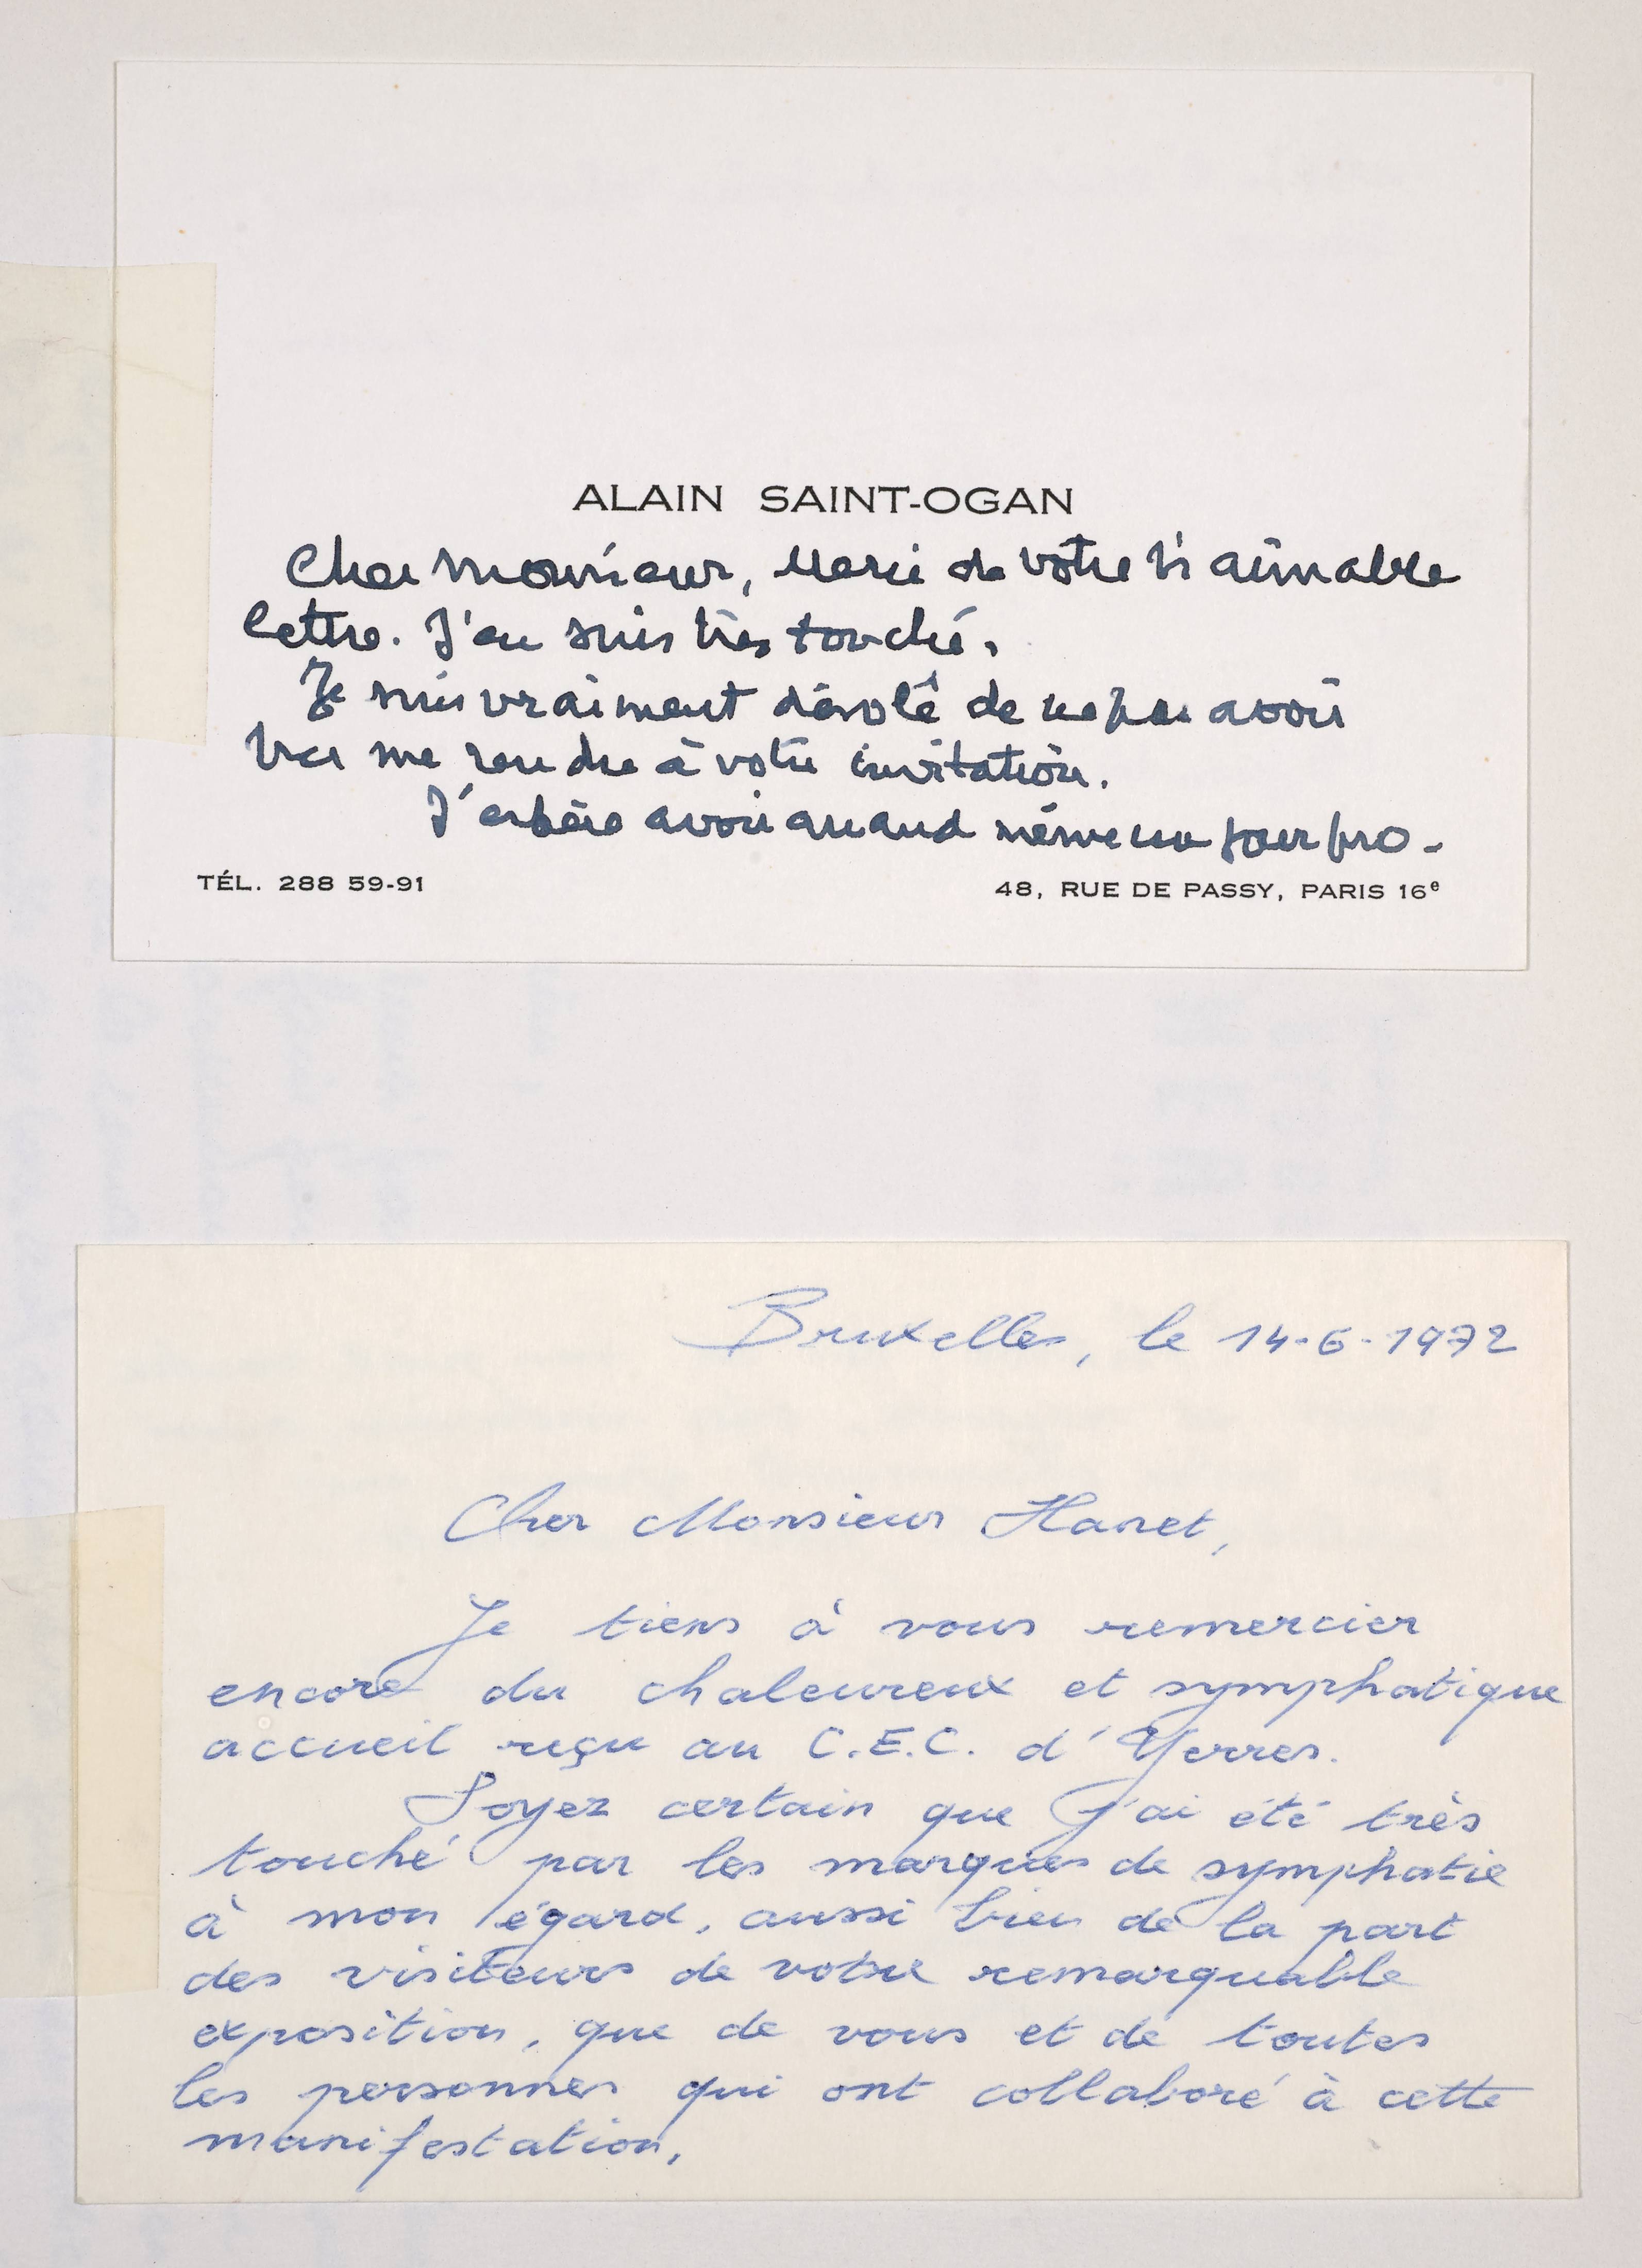 ALAIN SAINT-OGAN
Cher Monsieur, Merci de votre si aimable
lettre. J'en suis très touché.
Je suis vraiment désolé de ne pas avoir
pu me rendre à votre invitation.
J'espère avoir quand même un jour pro-
TÉL. 288 59-91
48, RUE DE PASSY, PARIS 16e
Bruxelles, le 14-6-1972
Cher Monsieur Hanet,
Je tiens à vous remercier
encore du chaleureux et symphatique
accueil reçu au C.E.C. d'Yerres.
Soyez certain que j'ai été très
touché par les marques de symphatie
à mon égard, aussi bien de la part
des visiteurs de votre remarquable
exposition, que de vous et de toutes
les personnes qui ont collaboré à cette
manifestation.